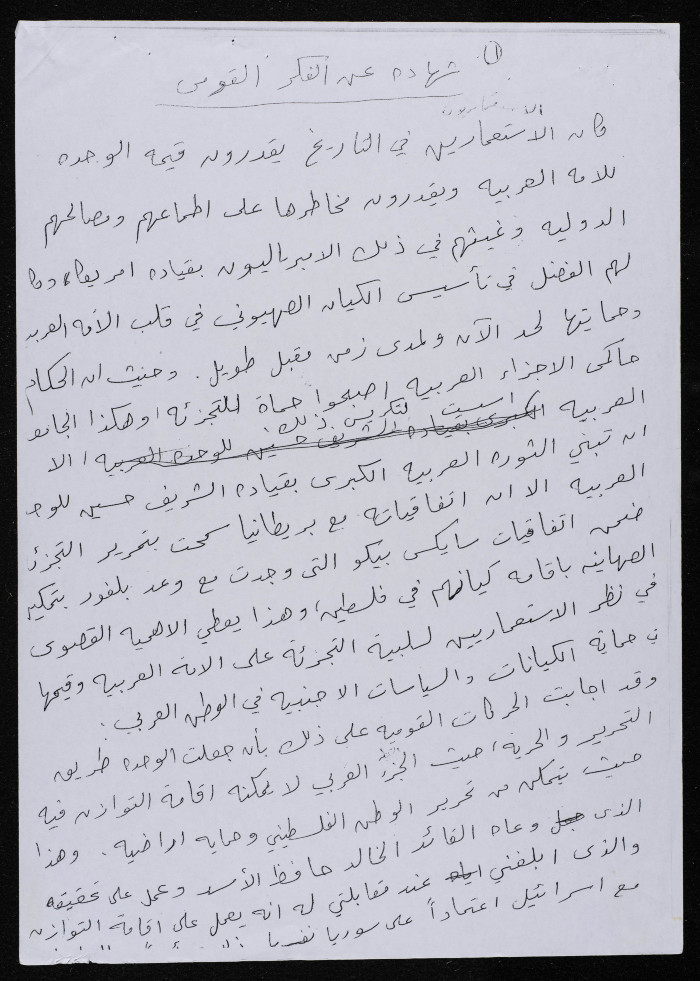 (١)
شهاده عن الفكر القومي
كان الاستعماريين في التاريخ يقدرون قيمه الوحده
للامه العربيه ويقدرون مخاطرها على اطماعهم ومصالحهم
الدوليه وغيثهم في ذلك الامبرياليون بقياده امريكا، وكا
لهم الفضل في تأسيس الكيان الصهيوني في قلب الأمه العربيه
وحمايتها لحد الآن ولمدى زمن مقبل طويل. وحيث ان الحكام
حاكمى الاجزاء العربيه اصبحوا حماة للتجزئه، وهكذا الجامعه
العربيه اسست لتكريس ذلك، الا
الكبرى بقياده الشريف حسين للوحده العربيه
ان تبني الثوره العربيه الكبرى بقياده الشريف حسين للوحد
العربيه الا ان اتفاقياته مع بريطانيا سمحت بتمرير التجزئه
ضمن اتفاقيات سايكس بيكو التى وجدت مع وعد بلفور بتمكين
الصهاينه باقامه كيانهم في فلسطين، وهذا يعطي الاهميه القصوى
في نظر الاستعماريين لسلبية التجزئه على الامة العربيه وقيمها
في حماية الكيانات والسياسات الاجنبيه في الوطن العربي.
وقد اجابت الحركات القوميه على ذلك بأن جعلت الوحده طريق
التحرير والحريه، حيث الجزء العربي لا يمكنه اقامة التوازن فيه
حيث يتمكن من تحرير الوطن الفلسطيني وحمايه اراضيه. وهذا
الذى وعاه القائد الخالد حافظ الأسد وعمل على تحقيقه
والذى ابلغني عند مقابلتي له انه يعمل على اقامة التوازن
مع اسرائيل اعتماداً على سوريا نفسها